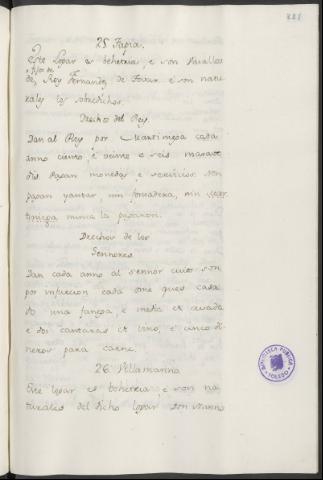 25 Tapia.
Este Logar es behetria, e son Vasallos
e fijos de
de Roy Fernandez de Tovar e son natu
rales los sobredichos.
Drechos del Rey.
Dan al Rey por Martiniega cada
anno ciento, e veinte e seis marave
dis Pagan monedas e servicios non
pagan yantar, nin fonsadera, nin
tiniega nunca la pagaron.
Drechos de los
Sennores
Dan cada anno al sennor cuios son
por infurcion cada ome que es casa
do una fanega, e media de cevada
e dos cantaras de vino, e cinco di
neros para carne.
26 Villamarina
Este logar es behetria, e son na
turales del dicho logar don Nunno
BIBLIOTECA PUBLICA
TOLEDO